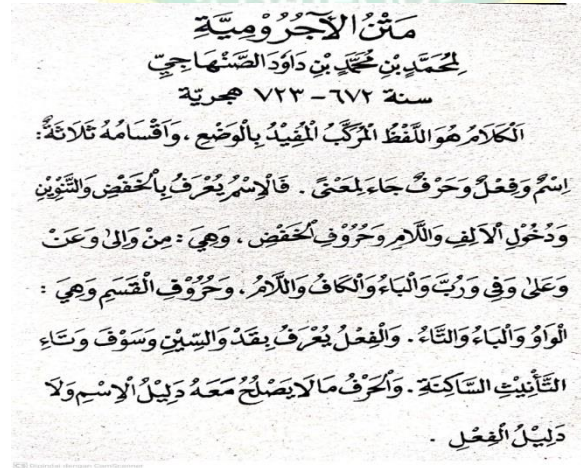 مَتْنُ الْآجُرُوْمِيَّةِ
لِمُحَمَّدِ بْنِ مُحَمَّدِ بْنِ دَاوُدَ الصَّنْهَاجِيِّ
سنة ٦٧٢ - ٧٢٣ هجريّة
اَلْكَلَامُ هُوَ اللَّفْظُ الْمُرَكَّبُ الْمُفِيْدُ بِالْوَضْعِ ، وَاَقْسَامُهُ ثَلَاثَةٌ :
اِسْمٌ وَفِعْلٌ وَحَرْفٌ جَاءَ لِمَعْنًى . فَالْاِسْمُ يُعْرَفُ بِالْخَفْضِ وَالتَّنْوِيْنِ
وَدُخُوْلِ الْاَلِفِ وَاللَّامِ وَحُرُوْفِ الْخَفْضِ ، وَهِيَ : مِنْ وَاِلٰى وَعَنْ
وَعَلٰى وَفِيْ وَرُبَّ وَالْبَاءُ وَالْكَافُ وَاللَّامُ ، وَحُرُوْفِ الْقَسَمِ وَهِيَ :
الْوَاوُ وَالْبَاءُ وَالتَّاءُ . وَالْفِعْلُ يُعْرَفُ بِقَدْ وَالسِّيْنِ وَسَوْفَ وَتَاءِ
التَّأْنِيْثِ السَّاكِنَةِ . وَالْحَرْفُ مَا لَا يَصْلُحُ مَعَهُ دَلِيْلُ الْاِسْمِ وَلَا
دَلِيْلُ الْفِعْلِ .
CS Dipindai dengan CamScanner